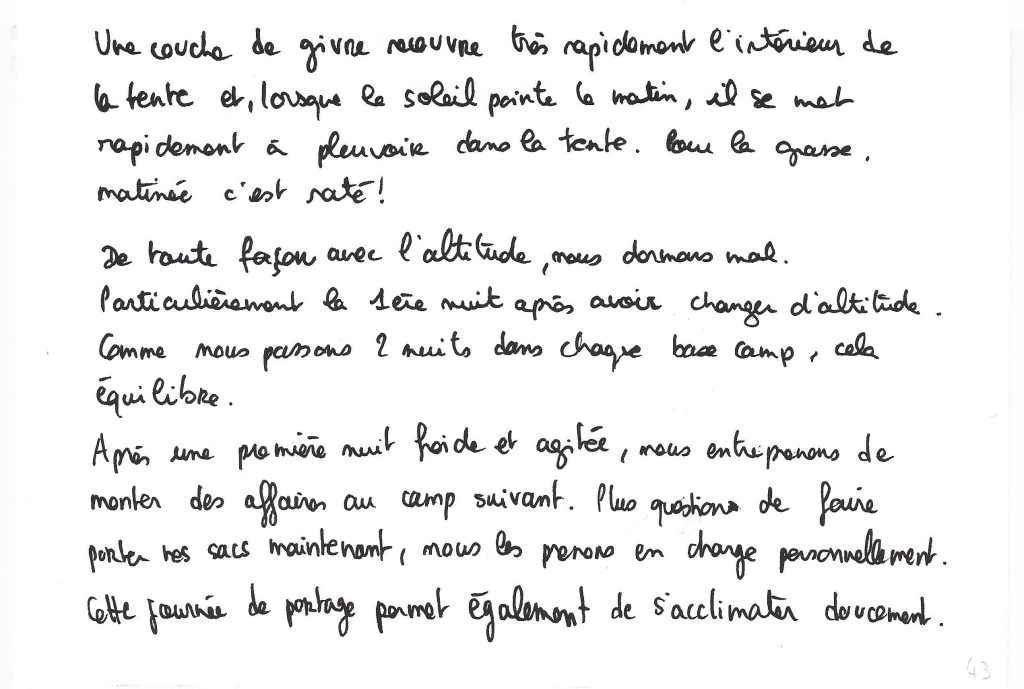 Une couche de givre recouvre très rapidement l'intérieur de
la tente et, lorsque le soleil pointe le matin, il se met
rapidement à pleuvoir dans la tente. Pour la grasse.
matinée c'est raté!
De toute façon avec l'altitude, nous dormons mal.
Particulièrement la 1ère nuit après avoir changer d'altitude.
Comme nous passons 2 nuits dans chaque base camp, cela
équilibre.
Après une première nuit froide et agitée, nous entreprenons de
monter des affaires au camp suivant. Plus question de faire
porter nos sacs maintenant, nous les prenons en charge personnellement.
Cette journée de portage permet également de s'acclimater doucement.
43